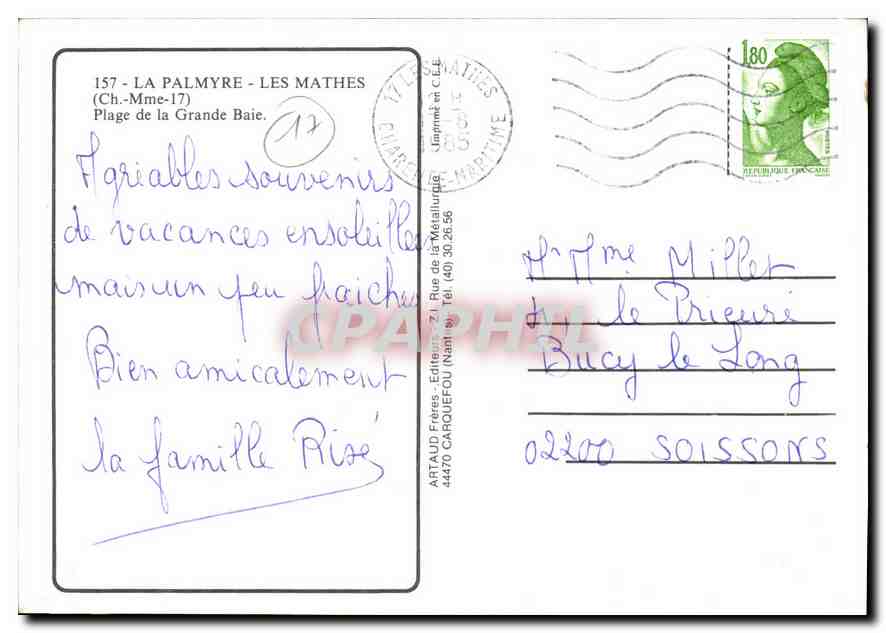 157 - LA PALMYRE - LES MATHES
(Ch.-Mme-17)
Plage de la Grande Baie.
17
Agréables souvenirs
de vacances ensoleillées
mais un peu fraiches
Bien amicalement
la famille Risé
ARTAUD Frères - Editeurs Z.I. Rue de la Métallurgie
44470 CARQUEFOU (Nantes) Tél. (40) 30.26.56
Imprimé en C.E.E.
17 LES MATHES
CHARENTE-MARITIME
1,80
REPUBLIQUE FRANÇAISE
CPAPHIL
Mr Mme Millet
le Prieuré
Bucy le Long
02200 SOISSONS